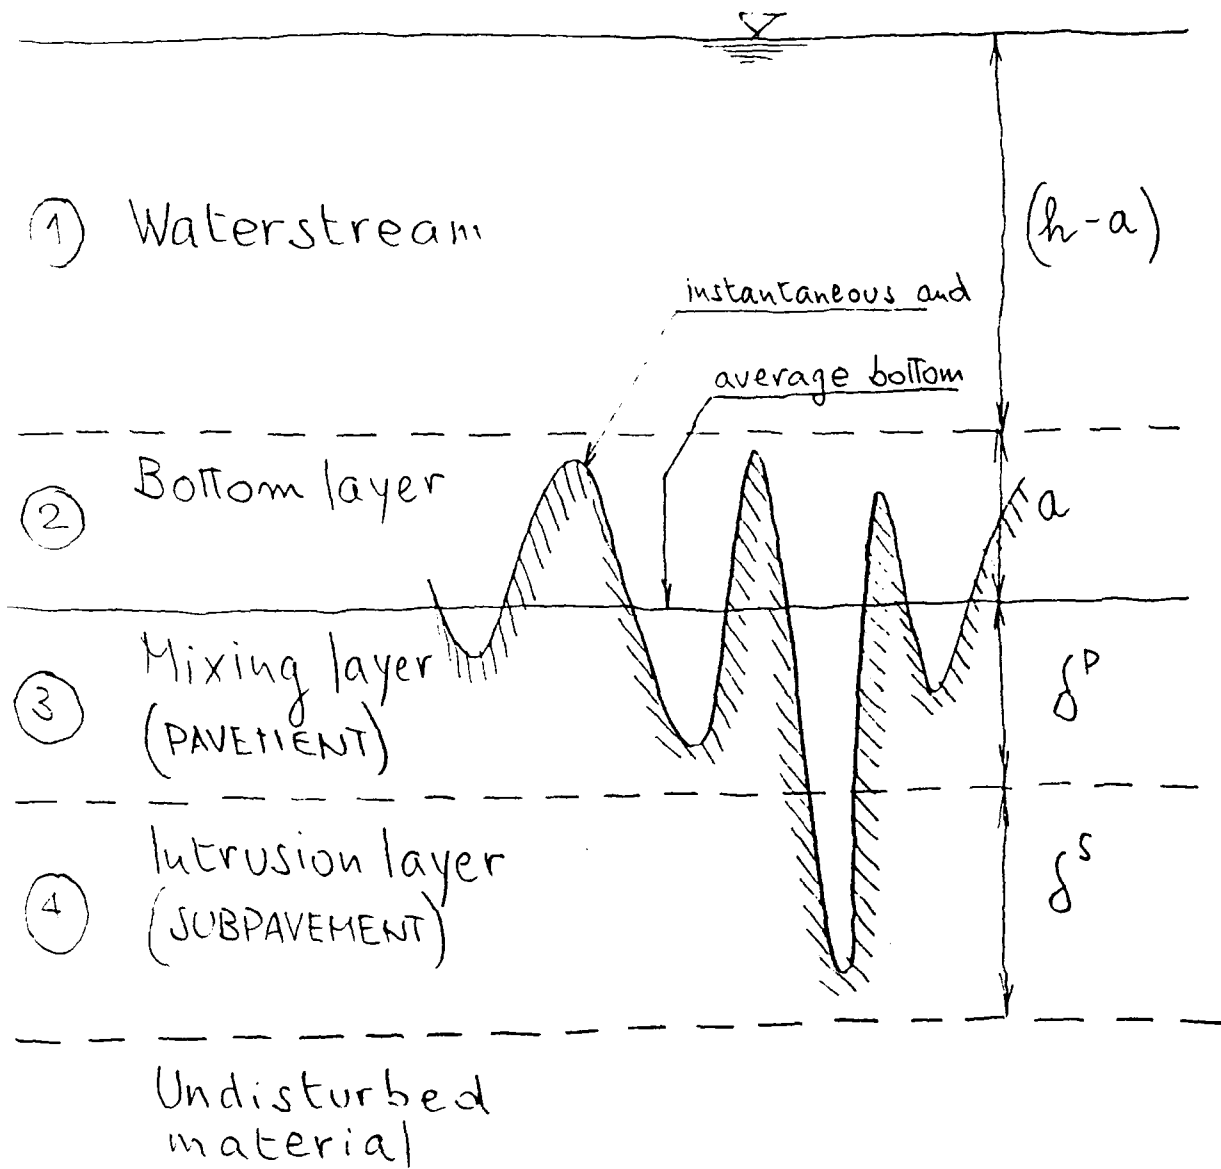 ① Waterstream
(h-a)
instantaneous and
average bottom
② Bottom layer
a
③ Mixing layer
(PAVEMENT)
δᴾ
④ Intrusion layer
(SUBPAVEMENT)
δˢ
Undisturbed
material